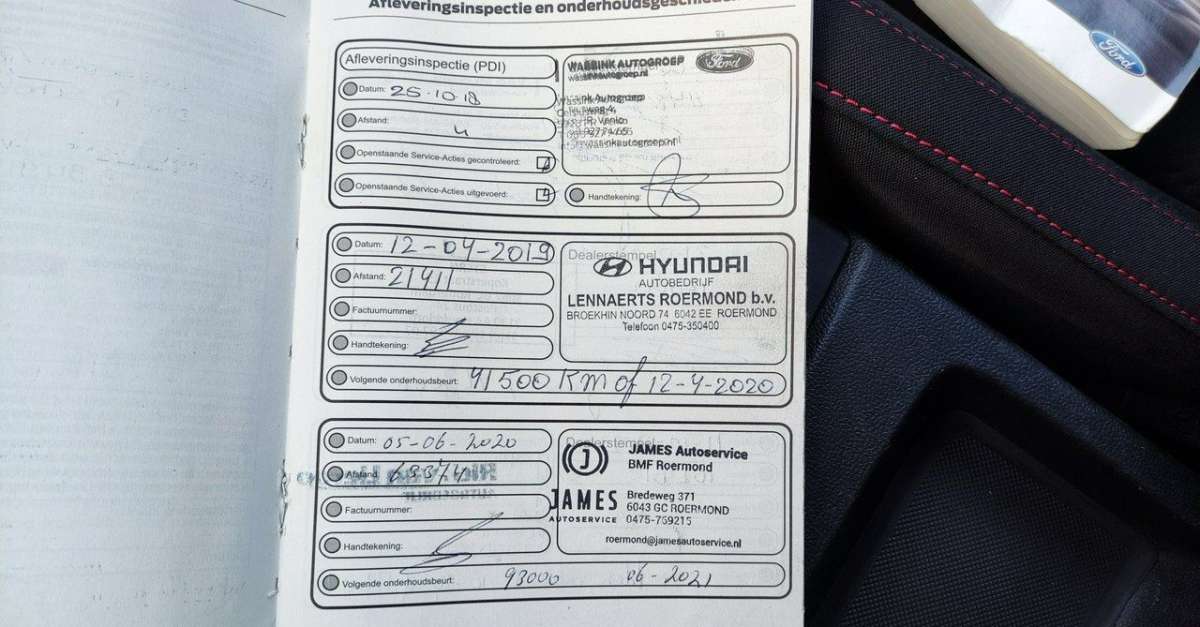 Afleveringsinspectie en onderhoudsgeschieden
Afleveringsinspectie (PDI)
Datum: 25-10-18
Afstand: 4
Openstaande Service-Acties gecontroleerd:
Openstaande Service-Acties uitgevoerd:
WASSINK AUTOGROEP
Ford
Handtekening:
Datum: 12-04-2019
Afstand: 21411
Factuurnummer:
Handtekening:
Volgende onderhoudsbeurt: 41500 KM of 12-4-2020
Dealerstempel
HYUNDAI
AUTOBEDRIJF
LENNAERTS ROERMOND b.v.
BROEKHIN NOORD 74 6042 EE ROERMOND
Telefoon 0475-350400
Datum: 05-06-2020
Afstand: 63374
Factuurnummer:
Handtekening:
Volgende onderhoudsbeurt: 93000 06-2021
Dealerstempel
JAMES Autoservice
BMF Roermond
J
JAMES
AUTOSERVICE
Bredeweg 371
6043 GC ROERMOND
0475-769215
roermond@jamesautoservice.nl
Ford